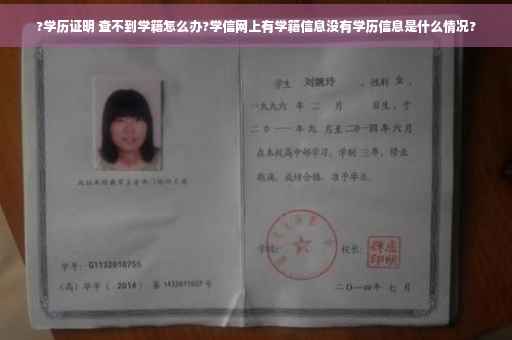 ?学历证明 查不到学籍怎么办?学信网上有学籍信息没有学历信息是什么情况?
学生 刘婉玲 ，性别 女 ，
一九九六 年 二 月 日生，于
二〇一一 年 九 月至 二〇一四 年 六 月
在本校高中部学习，学制 三 年，修业
期满，成绩合格，准予毕业。
学号： G1132010755
学校： 校长：
(高) 毕字 ( 2014 ) 第 1432011027 号
二〇一四年 七 月